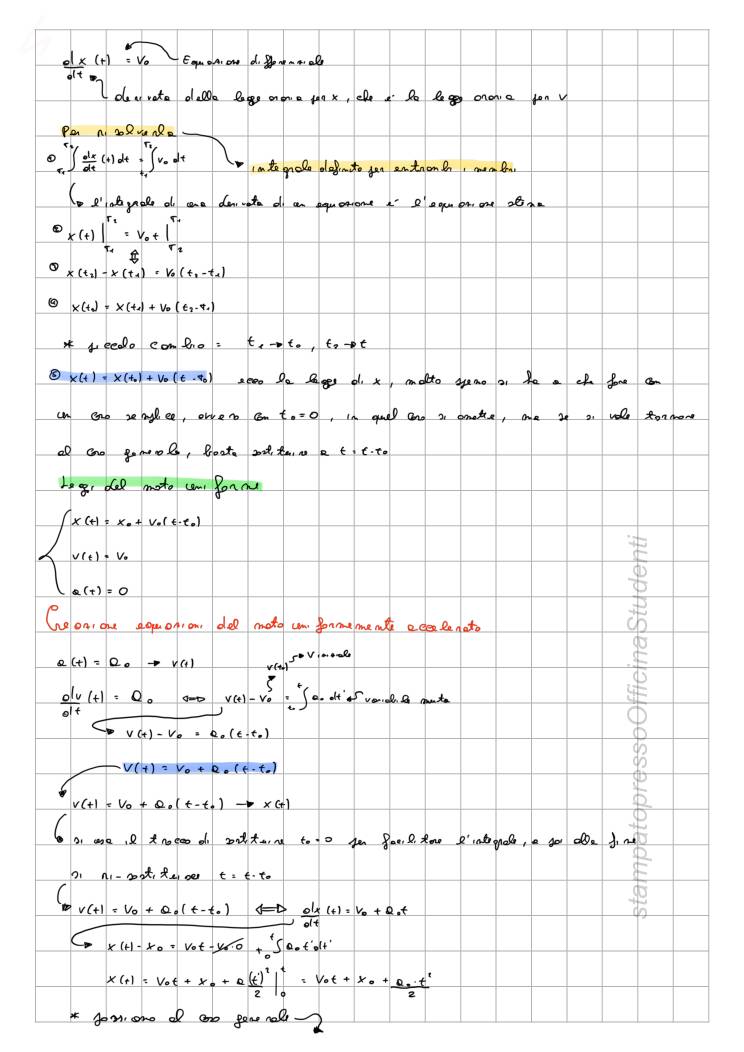 dx/dt (t) = V₀ Equazione differenziale
derivata della legge oraria per x, che è la legge oraria per v
Per risolverla
① ∫_{T₁}^{T₂} dx/dt (t) dt = ∫_{t₁}^{T₂} V₀ dt
integrale definito per entrambi i membri
l'integrale di una derivata di un equazione è l'equazione stessa
② x(t) |_{T₁}^{T₂} = V₀t |_{T₂}^{T₁}
⇕
③ x(t₂) - x(t₁) = V₀(t₂-t₁)
④ x(t₂) = x(t₁) + V₀(t₂-t₁)
* piccolo cambio = t₁ → t₀, t₂ → t
⑤ x(t) = x(t₀) + V₀(t-t₀) ecco la legge di x, molto spesso si ha a che fare con
un caso semplice, ovvero con t₀=0, in quel caso si omette, ma se si vole tornare
al caso generale, basta sostituire a t = t-t₀
Leggi del moto uniforme
x(t) = x₀ + V₀(t-t₀)
v(t) = V₀
a(t) = 0
Creazione equazioni del moto uniformemente accelerato
a(t) = a₀ → v(t)
v(t₀) → Variabile
dv/dt (t) = a₀ ⇔ v(t) - V₀ = ∫ a₀ dt' variabile muta
v(t) - V₀ = a₀(t-t₀)
V(t) = V₀ + a₀(t-t₀)
v(t) = V₀ + a₀(t-t₀) → x(t)
si usa il trucco di sostituire t₀=0 per facilitare l'integrale, e poi alla fine
si ri-sostituisce t = t-t₀
v(t) = V₀ + a₀(t-t₀) ⇔ dx/dt (t) = V₀ + a₀t
x(t) - x₀ = V₀t - V₀·0 + ∫₀ᵗ a₀t'dt'
x(t) = V₀t + x₀ + a (t')²/2 |₀ᵗ = V₀t + x₀ + a₀·t²/2
* passiamo al caso generale
stampatopressoOfficinaStudenti